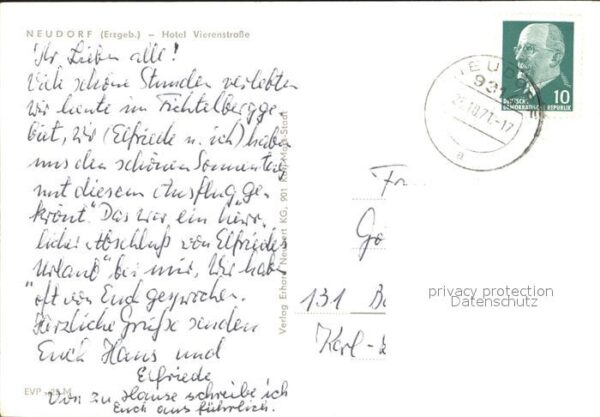 NEUDORF (Erzgeb.) — Hotel Vierenstraße
Ihr Lieben alle!
Viele schöne Stunden verlebten
wir heute im Fichtelbergge-
biet, wir (Elfriede u. ich) haben
uns den schönen Sonnentag
mit diesem Ausflug „ge-
krönt". Das war ein herr-
licher Abschluß von Elfriedes
„Urlaub" bei mir. Wir hab
oft von Euch gesprochen.
Herzliche Grüße senden
Euch Hans und
Elfriede
Von zu Hause schreibe ich
Euch ausführlich.
EVP -,25 M
Verlag Erhard Neubert KG, 901 Karl-Marx-Stadt
NEUDORF
931
71-17
a
DEUTSCHE
DEMOKRATISCHE REPUBLIK
10
Fr
Go
131 B
Karl-
privacy protection
Datenschutz